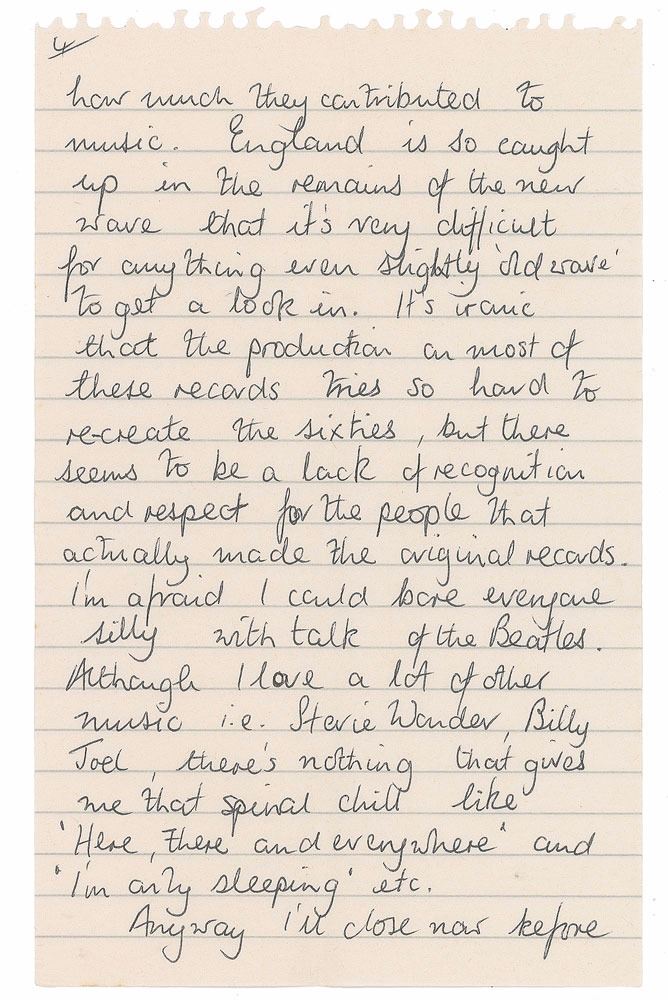 4
how much they contributed to
music. England is so caught
up in the remains of the new
wave that it's very difficult
for anything even slightly 'old wave'
to get a look in. It's ironic
that the production on most of
these records tries so hard to
re-create the sixties, but there
seems to be a lack of recognition
and respect for the people that
actually made the original records.
I'm afraid I could bore everyone
silly with talk of the Beatles.
Although I love a lot of other
music i.e. Stevie Wonder, Billy
Joel, there's nothing that gives
me that spinal chill like
'Here, there and everywhere' and
'I'm only sleeping' etc.
Anyway I'll close now before